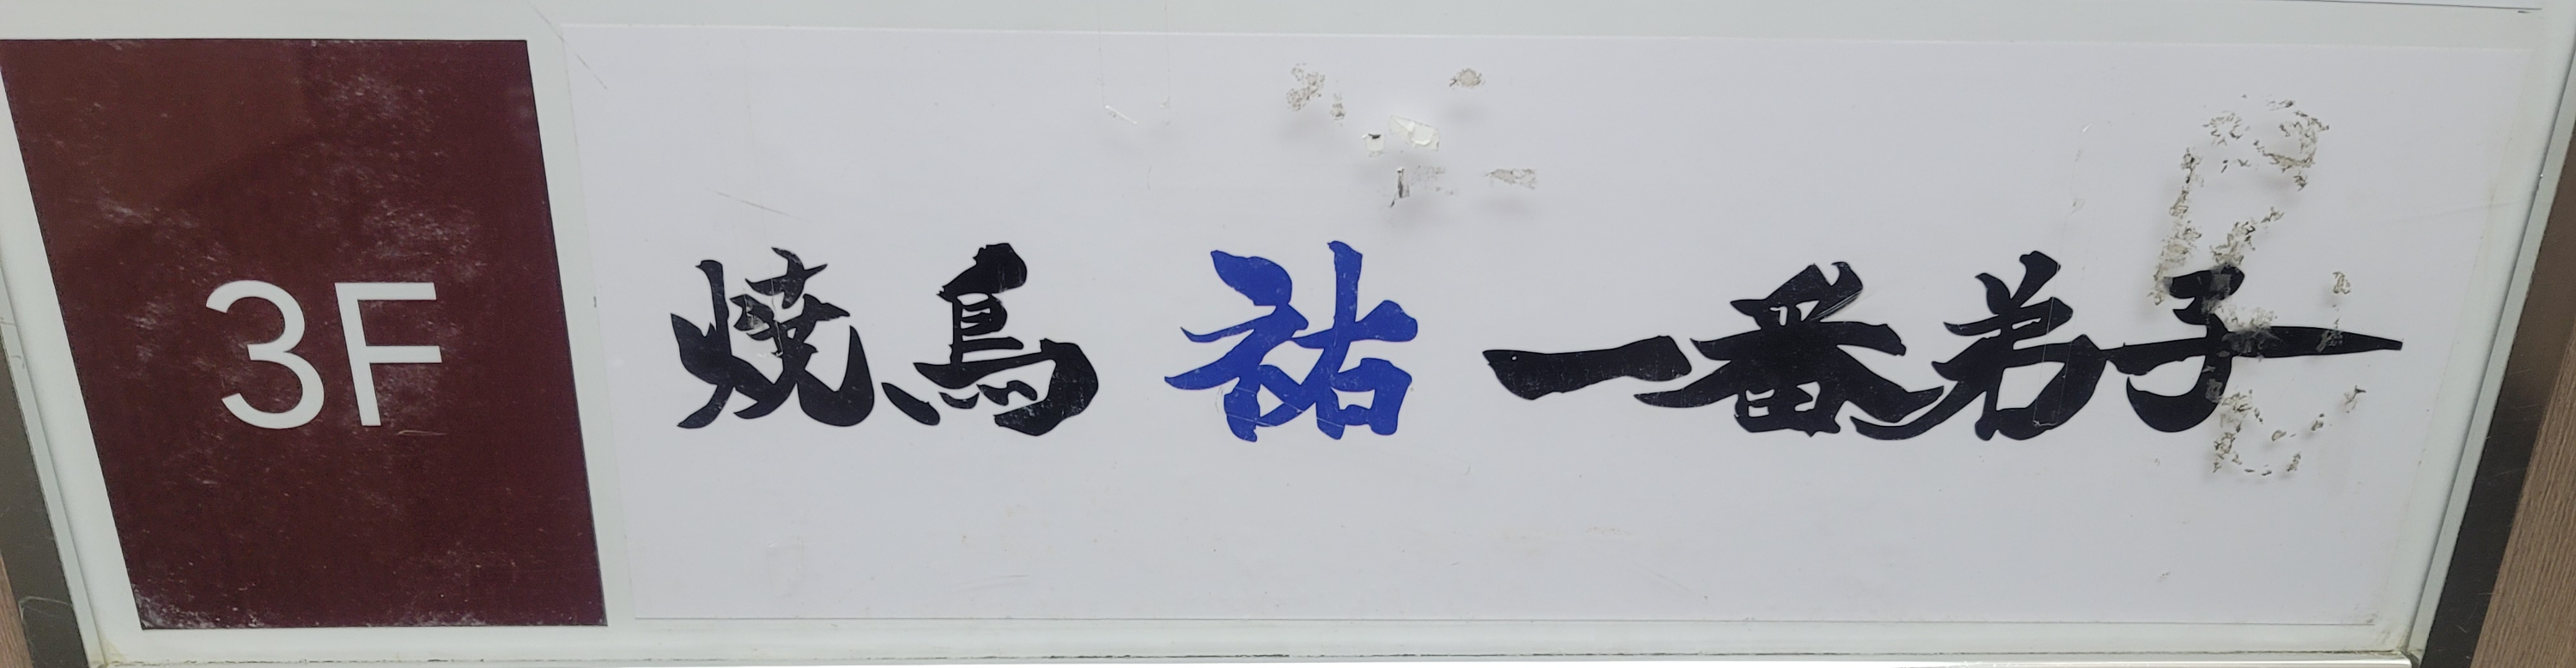 3F 焼鳥 祐 一番弟子